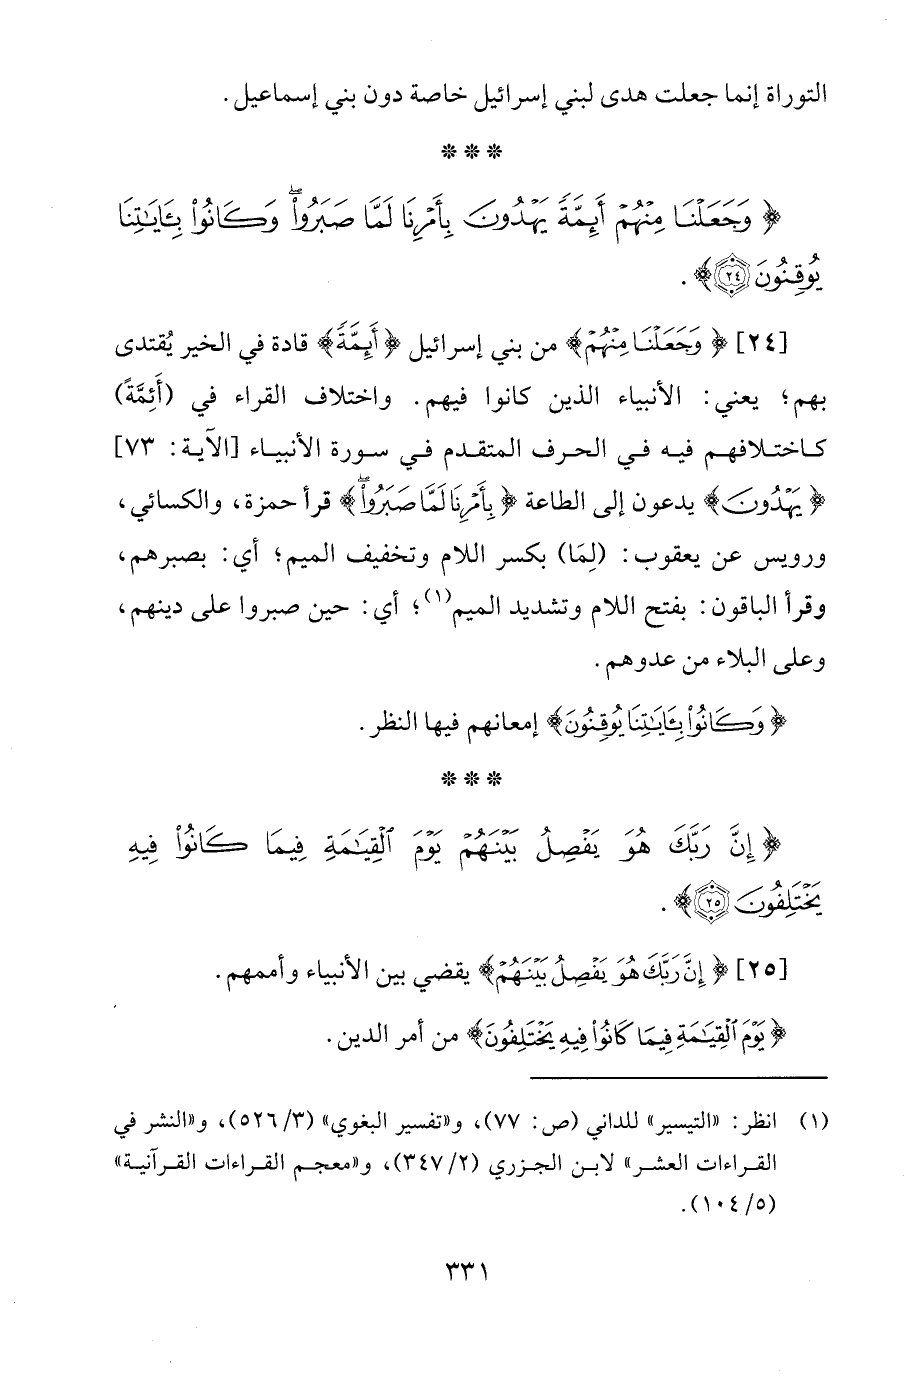 التوراة إنما جعلت هدى لبني إسرائيل خاصة دون بني إسماعيل.
* * *
﴿ وَجَعَلْنَا مِنْهُمْ أَئِمَّةً يَهْدُونَ بِأَمْرِنَا لَمَّا صَبَرُواْۖ وَكَانُواْ بِـَٔايَٰتِنَا
يُوقِنُونَ ٢٤﴾.
[٢٤] ﴿ وَجَعَلْنَا مِنْهُمْ﴾ من بني إسرائيل ﴿ أَئِمَّةً﴾ قادة في الخير يُقتدى
بهم؛ يعني: الأنبياء الذين كانوا فيهم. واختلاف القراء في (أَئِمَّةً)
كاختلافهم فيه في الحرف المتقدم في سورة الأنبياء [الآية: ٧٣]
﴿ يَهْدُونَ﴾ يدعون إلى الطاعة ﴿ بِأَمْرِنَا لَمَّا صَبَرُواْۖ﴾ قرأ حمزة، والكسائي،
ورويس عن يعقوب: (لِمَا) بكسر اللام وتخفيف الميم؛ أي: بصبرهم،
وقرأ الباقون: بفتح اللام وتشديد الميم(١)؛ أي: حين صبروا على دينهم،
وعلى البلاء من عدوهم.
﴿ وَكَانُواْ بِـَٔايَٰتِنَا يُوقِنُونَ﴾ إمعانهم فيها النظر.
* * *
﴿ إِنَّ رَبَّكَ هُوَ يَفْصِلُ بَيْنَهُمْ يَوْمَ الْقِيَٰمَةِ فِيمَا كَانُواْ فِيهِ
يَخْتَلِفُونَ ٢٥﴾.
[٢٥] ﴿ إِنَّ رَبَّكَ هُوَ يَفْصِلُ بَيْنَهُمْ﴾ يقضي بين الأنبياء وأممهم.
﴿ يَوْمَ الْقِيَٰمَةِ فِيمَا كَانُواْ فِيهِ يَخْتَلِفُونَ﴾ من أمر الدين.
(١) انظر: «التيسير» للداني (ص: ٧٧)، و«تفسير البغوي» (٣/ ٥٢٦)، و«النشر في
القراءات العشر» لابن الجزري (٢/ ٣٤٧)، و«معجم القراءات القرآنية»
(٥/ ١٠٤).
٣٣١